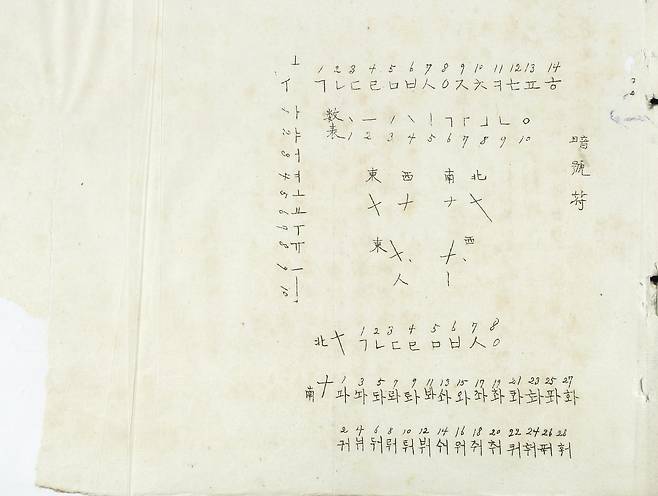 暗號符
ㅜ 1 2 3 4 5 6 7 8 9 10 11 12 13 14
ㄱ ㄴ ㄷ ㄹ ㅁ ㅂ ㅅ ㅇ ㅈ ㅊ ㅋ ㅌ ㅍ ㅎ
1 2 3 4 5 6 7 8 9 10
ㅏ ㅑ ㅓ ㅕ ㅗ ㅛ ㅜ ㅠ ㅡ ㅣ
数表
1 2 3 4 5 6 7 8 9 10
東 西 南 北
東 西
人 ㅣ
北 1 2 3 4 5 6 7 8
ㄱ ㄴ ㄷ ㄹ ㅁ ㅂ ㅅ ㅇ
南 1 3 5 7 9 11 13 15 17 19 21 23 25 27
과 놔 돠 롸 뫄 봐 솨 와 좌 촤 콰 톼 퐈 화
2 4 6 8 10 12 14 16 18 20 22 24 26 28
궈 눠 둬 뤄 붜 숴 워 줘 춰 쿼 퉈 풔 훠